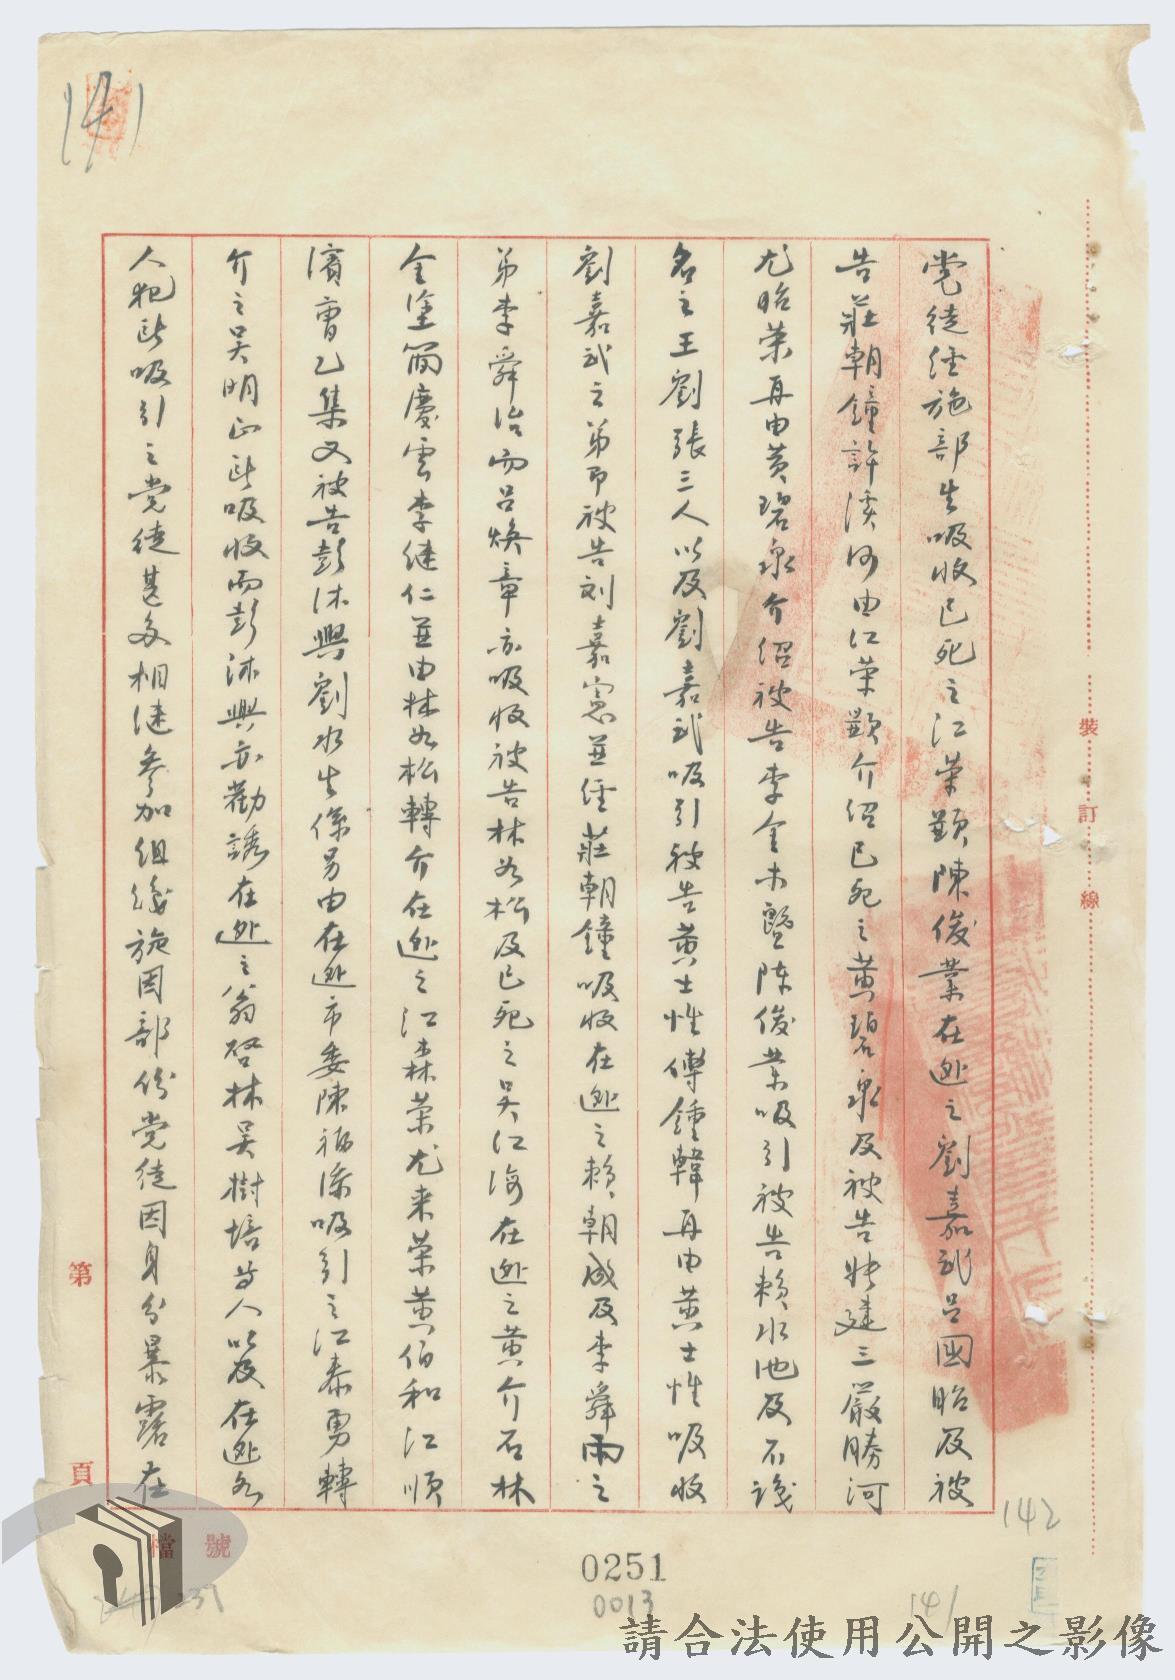 141
黨徒經施部生吸收已死之江榮顯陳俊業在逃之劉嘉武呂國昭及被
告莊朝鐘許溪河由江榮顯介紹已死之黃碧泉及被告林建三嚴勝河
尤昭榮再由黃碧泉介紹被告李金木暨陳俊業吸引被告賴水池及不識
名之王劉張三人以及劉嘉武吸引被告黃士性傅鍾韓再由黃士性吸收
劉嘉武之弟即被告刘嘉憲並經莊朝鐘吸收在逃之賴朝成及李舜雨之
弟李舜治而呂煥章亦吸收被告林如松及已死之吳江海在逃之黃介石林
金塗簡慶雲李繼仁並由林如松轉介在逃之江森榮尤来榮黃伯和江順
濱曹乙集又被告彭沐興劉水生係另由在逃市委陳福添吸引之江泰勇轉
介之吳明正所吸收而彭沐興亦勸誘在逃之翁啓林吳樹培等人以及在逃各
人犯所吸引之党徒甚多相繼參加組織旋因部份党徒因身分暴露在
裝
訂
線
第
頁
檔號
0251
0013
142
141
請合法使用公開之影像